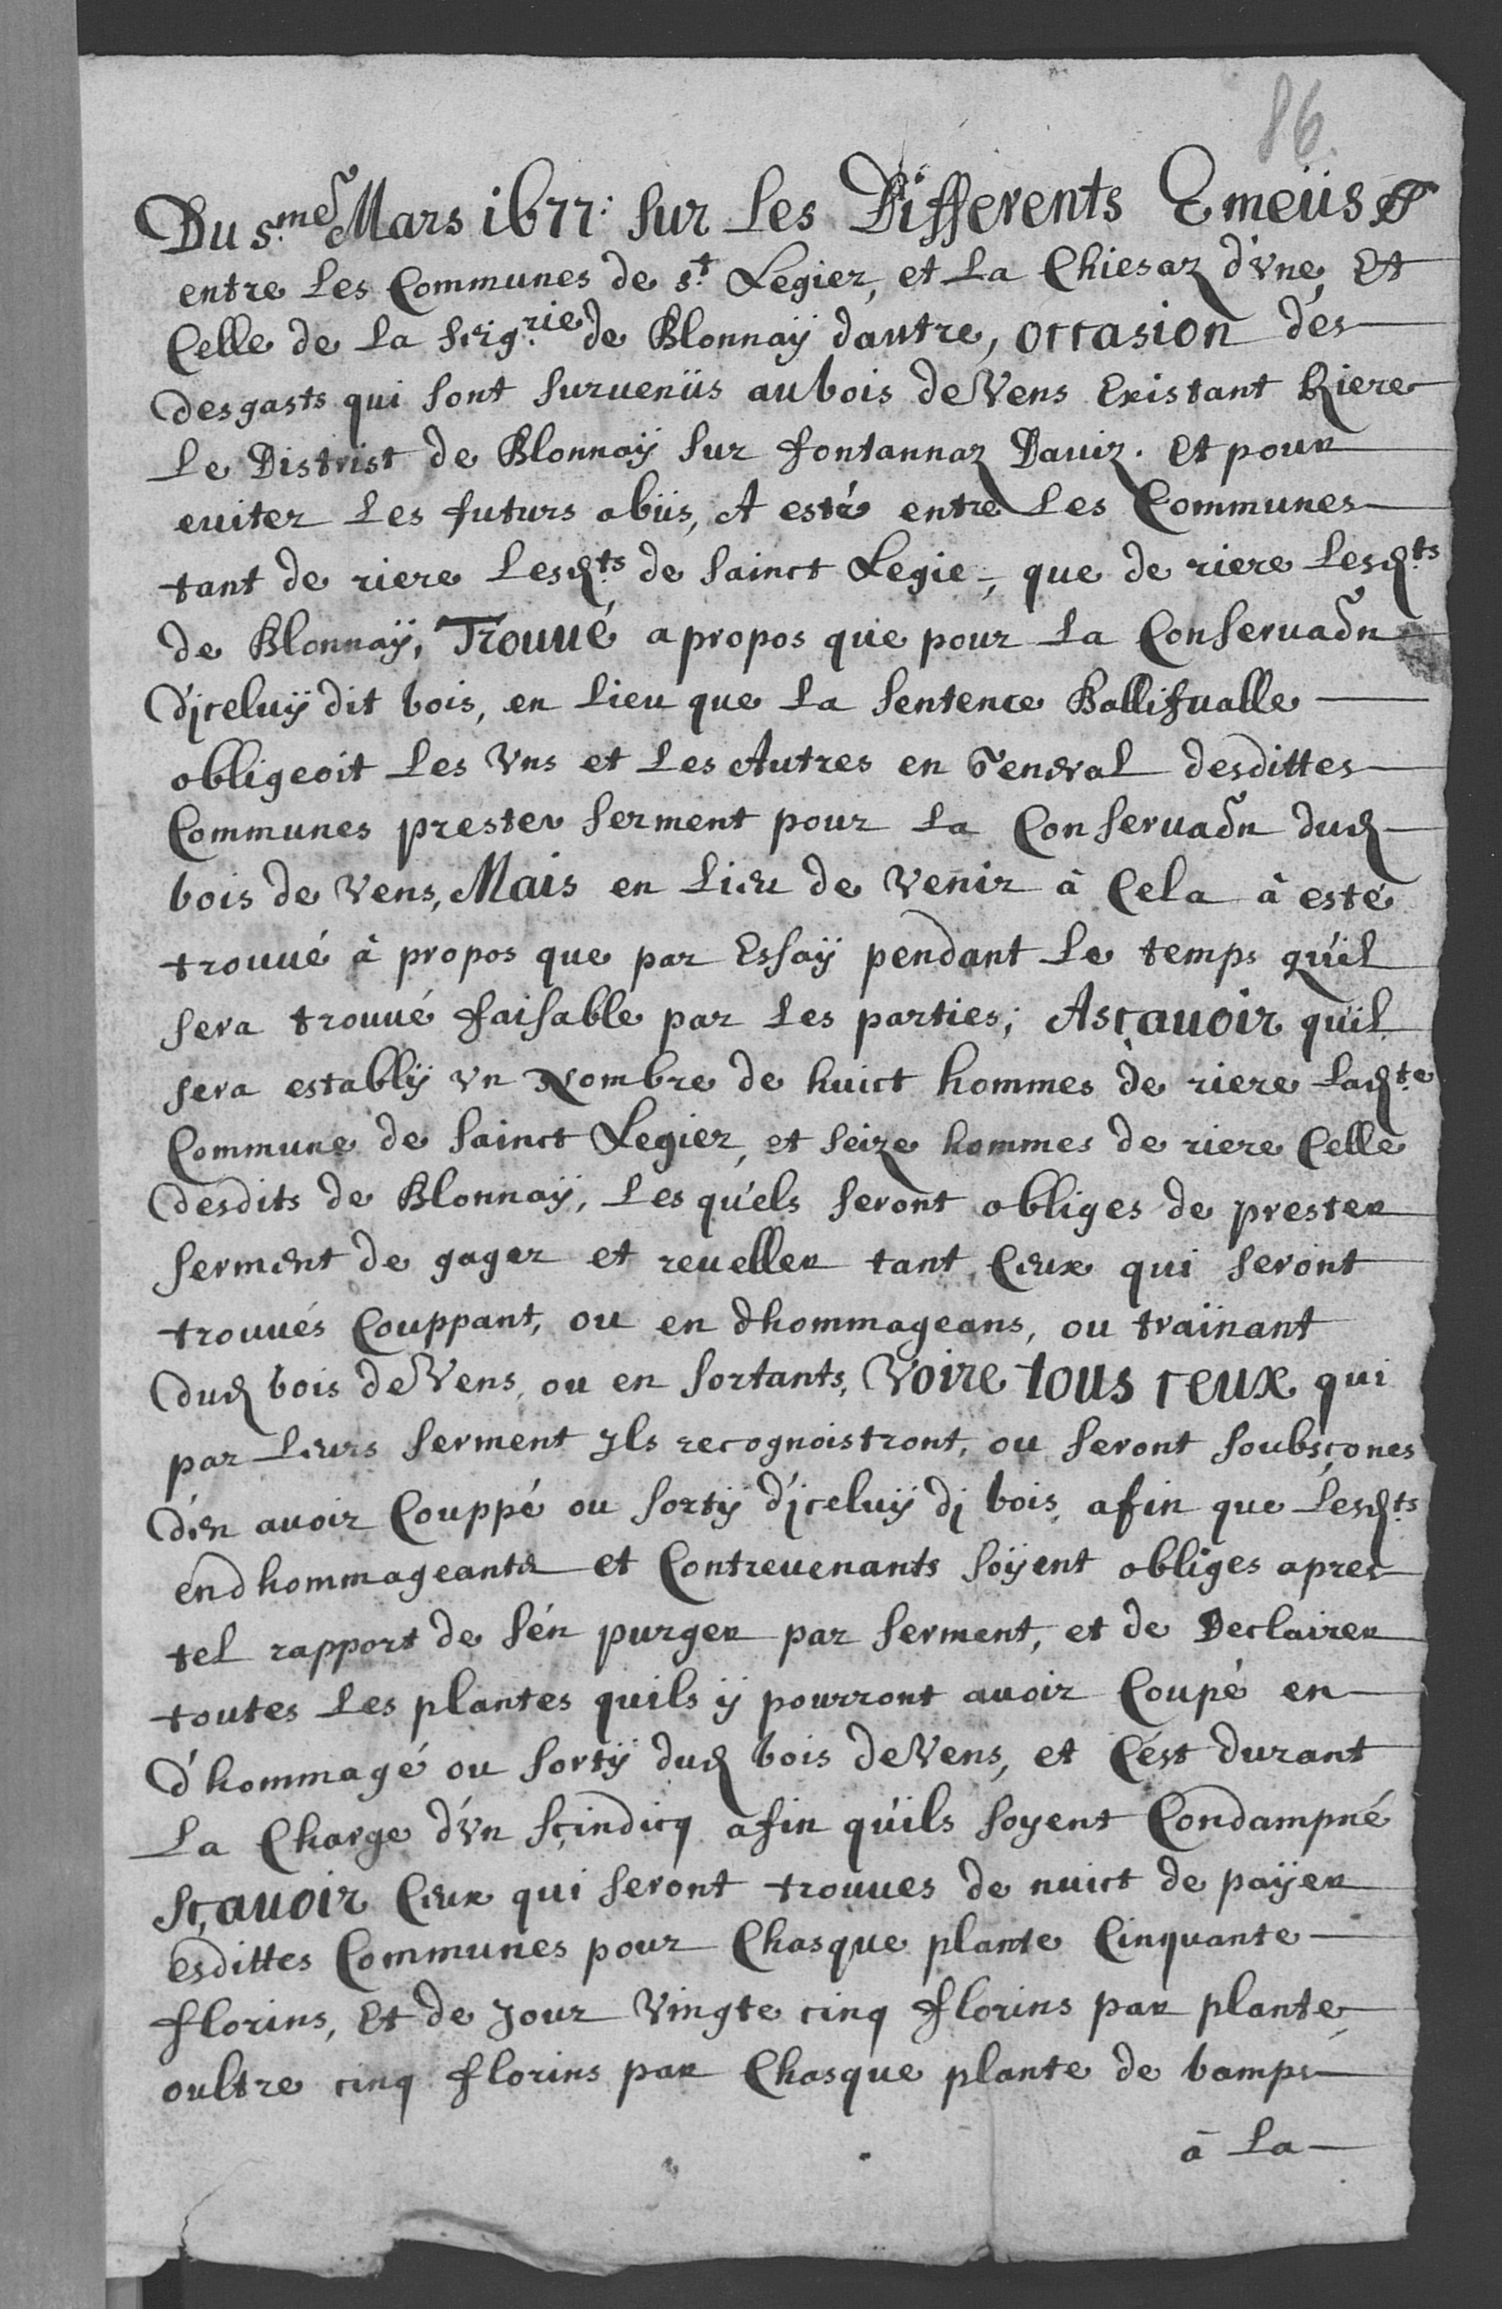 86.
Du 5.me Mars 1677: sur Les Differents Emeüs
entre Les Communes de st. Legier, et La Chiesaz d'vne, Et
Celle de La seig.rie de Blonnaÿ dautre, occasion dés
desgasts qui sont suruenüs au bois de Vens Existant Riere
Le Distrist de Blonnaÿ sur fontannaz Dauiz. Et pour
euiter Les futurs abüs, A esté entre Les Communes
tant de riere Lesd.ts de sainct Legie, que de riere Lesd.ts
de Blonnaÿ, Trouué a propos que pour La Conseruaõn
d'jceluÿ dit bois, en Lieu que La sentence Ballifualle
obligeoit Les Vns et Les Autres en General desdittes
Communes prester serment pour La Conseruaõn dud
bois de Vens, Mais en Lieu de Venir à Cela à esté
trouué à propos que par Essaÿ pendant Le temps qu'il
sera trouué faisable par Les parties; Asçauoir quil
sera establÿ vn Nombre de huict hommes de riere Lad.te
Commune de sainct Legier, et seize hommes de riere Celle
desdits de Blonnaÿ, Les qu'els seront obliges de prester
serment de gager et reueller tant Ceux qui seront
trouués Couppant, ou en dhommageans, ou traïnant
dud bois de Vens, ou en sortants, Voire tous ceux qui
par Leurs serment Jls recognoistront, ou seront soubsçones
d'en auoir Couppé ou sortÿ d'jceluÿ dj bois, afin que Lesd.ts
endhommageants et Contreuenants soÿent obliges apres
tel rapport de s'én purger par serment, et de Declairer
toutes Les plantes quils ÿ pourront auoir Coupé en
d'hommagé ou sortÿ dud bois de Vens, et C'ést durant
La Charge d'vn sçindicq afin qu'ils soyent Condampné
sçauoir Ceux qui seront trouues de nuict de païer
esdittes Communes pour Chasque plante Cinquante
florins, Et de Jour Vingte cinq florins par plante
oultre cinq florins par Chasque plante de bamps
à La